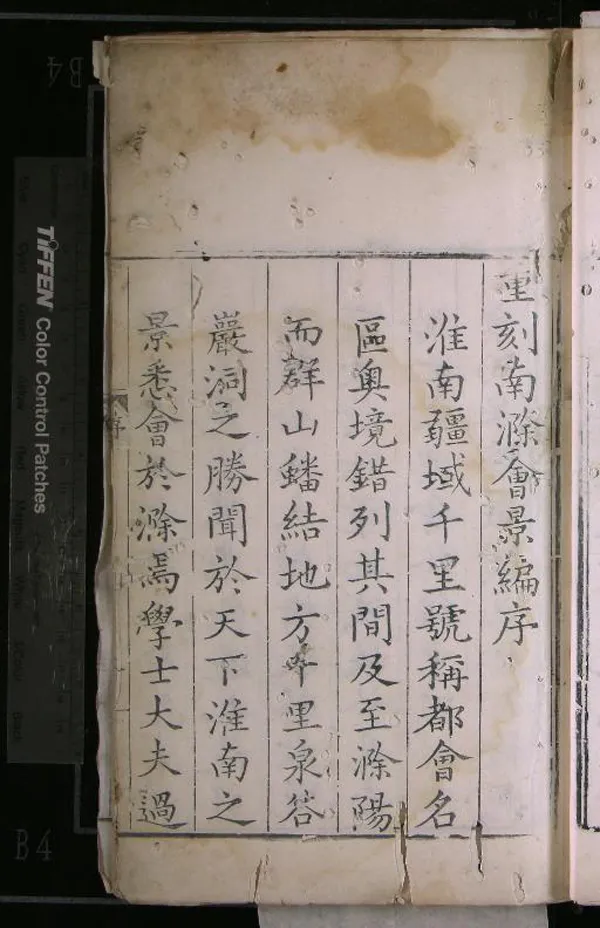 重刻南滁會景編序
淮南疆域千里號稱都會名
區奧境錯列其間及至滁陽
而群山蟠結地方千里泉谷
巖洞之勝聞於天下淮南之
景悉會於滁焉學士大夫過
序
TIFFEN Color Control Patches
B4
B4